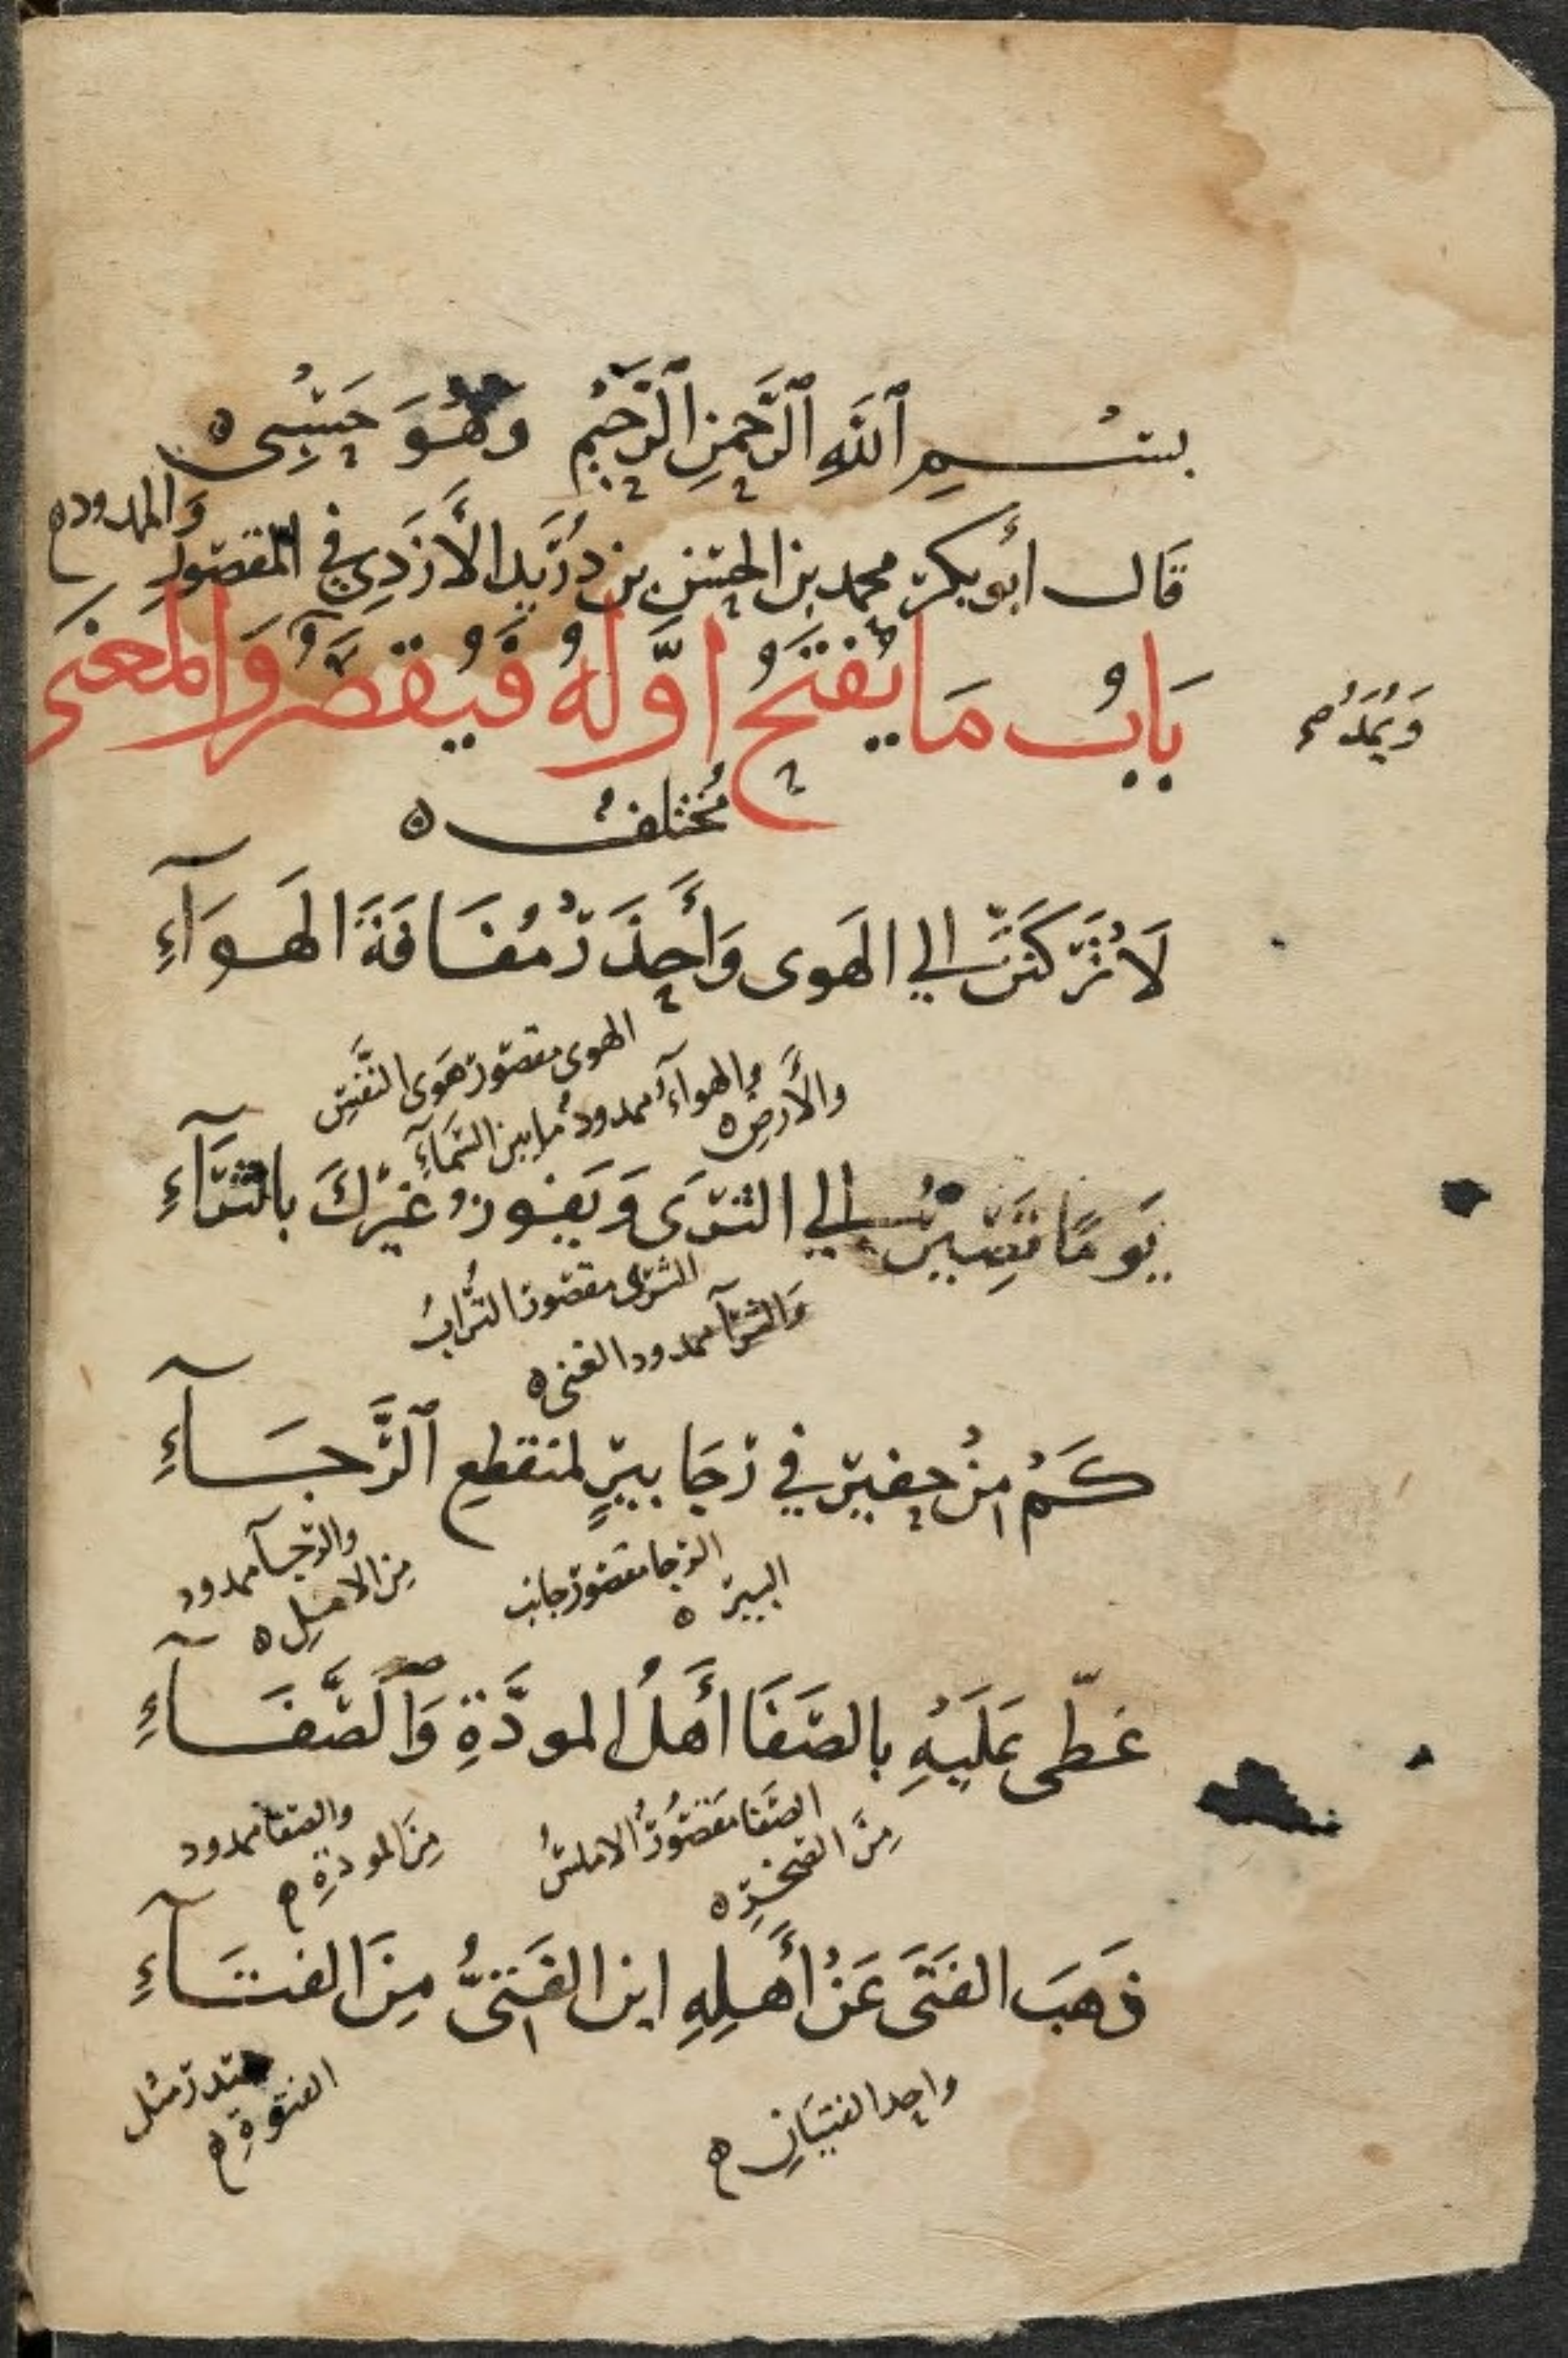 بسم ٱلله ٱلرَّحمنِ ٱلرَّحيمِ وَهُوَ حَسْبِى
قَال أبو بكر محمد بن الحسن بن دُرَيد الأَزدِي في المقصورِ والممدود
بَابُ مَا يُفتَحُ اوَّلهُ فَيُقصَرُ وَالمعنَى
وَيُمَدُّ
مُختلفٌ
لَا تَرْكَنَنَّ إلي الهَوى وَأَحِذَرْ مُفَارَقَةَ الهَوَآءِ
الهوى مقصور هَوَى النَّفس
والهوآءُ ممدودُ ما بين السَّمَآءِ
والأَرض
يَومًا تَصِيرُ إلي الثرَى وَيَفوزُ غيرُكَ بالثرَآءِ
الثرى مقصور التُّرابُ
وَالثرآ ممدود الغنى
كَمْ مِنْ حفير في رَجَا بيرٍ لمنقطعِ ٱلرَّجَآءِ
الرجا مقصور جانب
البير
والرجآ ممدود
مِن الامل
غَطّى عَلَيْهِ بالصَفَا أَهلُ المودَّةِ وَٱلصَّفَآءِ
الصَفا مَقصُورُ الاملسُ
مِنَ الصخرِ
والصفا ممدود
مِنَ المودةِ
ذَهَبَ الفَتَى عَنْ أَهلِهِ اين الفَتِىُّ مِنَ الفتَآءِ
واحد الفتيَانِ
مصدر مثل
الفتوةِ